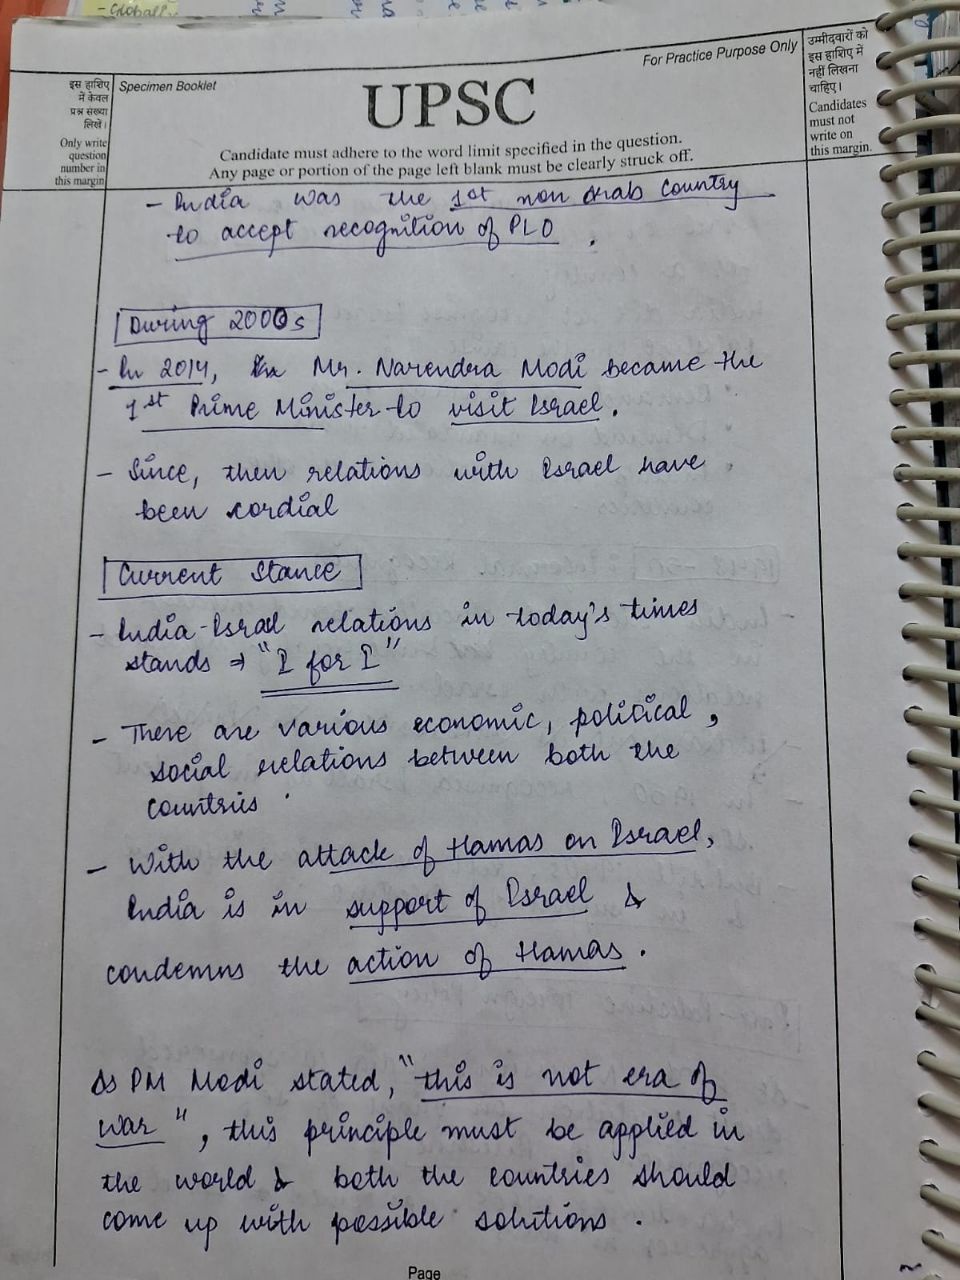 - Globally
For Practice Purpose Only
इस हाशिए
में केवल
प्रश्न संख्या
लिखें।
Only write
question
number in
this margin
Specimen Booklet
UPSC
Candidate must adhere to the word limit specified in the question.
Any page or portion of the page left blank must be clearly struck off.
उम्मीदवारों को
इस हाशिए में
नहीं लिखना
चाहिए।
Candidates
must not
write on
this margin.
- India was the 1st non Arab Country
to accept recognition of PLO .
During 2000s
- In 2014, Mr. Narendra Modi became the
1st Prime Minister to visit Israel.
- Since, then relations with Israel have
been cordial
Current Stance
- India-Isral relations in today's times
stands → "I for I"
- There are various economic, political,
social relations between both the
countries.
- With the attack of Hamas on Israel,
India is in support of Israel &
condemns the action of Hamas.
As PM Modi stated, "this is not era of
war", this principle must be applied in
the world & both the countries should
come up with possible solutions.
Page